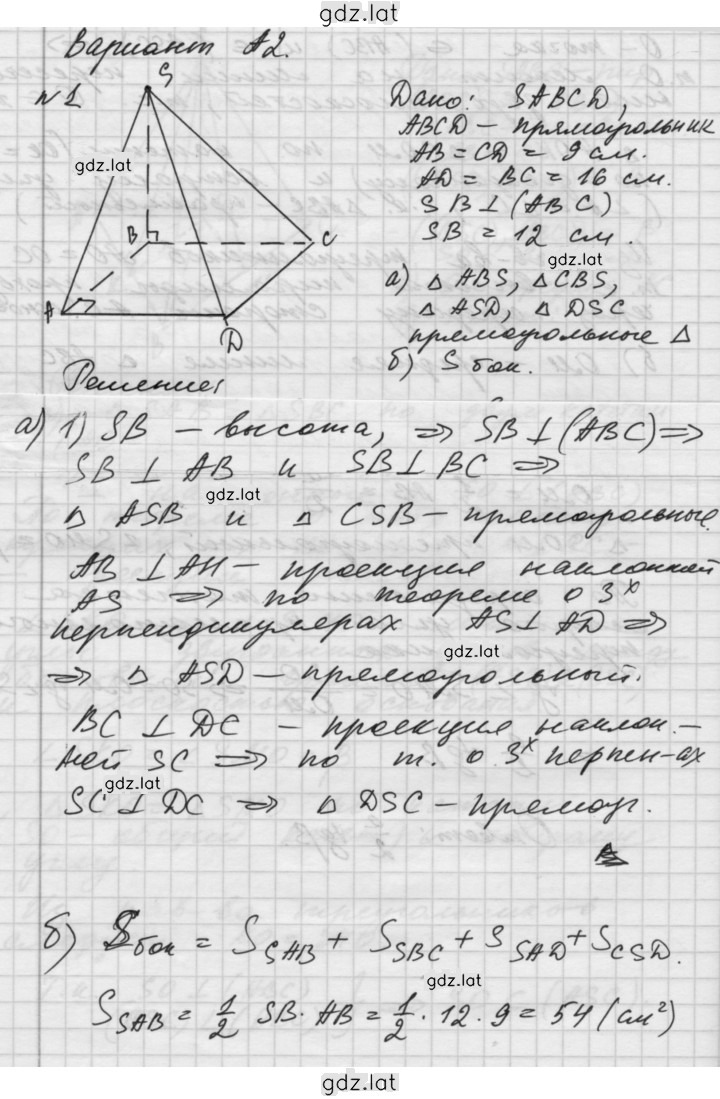 gdz.lat
Вариант А2.
№1
S
gdz.lat
B
C
A
D
Дано: SABCD,
ABCD – прямоугольник
AB = CD = 9 см.
AD = BC = 16 см.
SB ⊥ (ABC)
SB = 12 см.
gdz.lat
а) △ ABS, △ CBS,
△ ASD, △ DSC
прямоугольные △
б) S бок.
Решение:
а) 1) SB – высота, ⇒ SB ⊥ (ABC) ⇒
SB ⊥ AB и SB ⊥ BC ⇒
gdz.lat
△ ASB и △ CSB – прямоугольные.
AB ⊥ AH – проекция наклонной
AS ⇒ по теореме о 3х
перпендикулерах AS ⊥ AD ⇒
gdz.lat
⇒ △ ASD – прямоугольный.
BC ⊥ DC – проекция наклон. –
ней SC ⇒ по т. о 3х перпен-ах
gdz.lat
SC ⊥ DC ⇒ △ DSC – прямоуг.
б) Sбок = SSAB + SSBC + SSAD + SCSD.
gdz.lat
SSAB = 1/2 SB · AB = 1/2 · 12 · 9 = 54 (см²)
gdz.lat